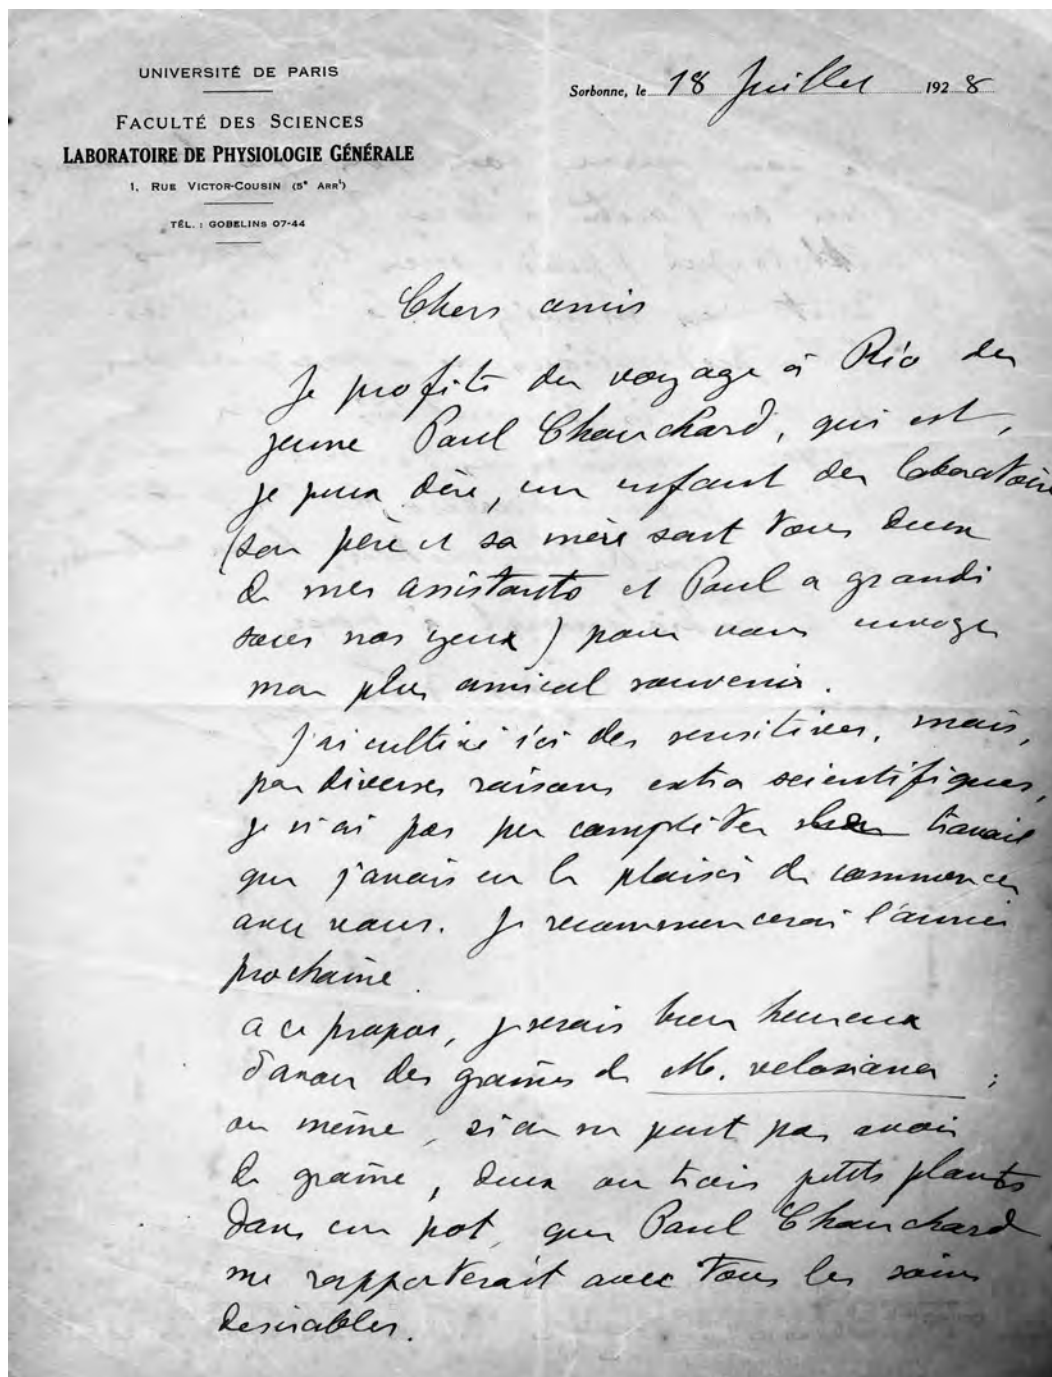 UNIVERSITÉ DE PARIS
FACULTÉ DES SCIENCES
LABORATOIRE DE PHYSIOLOGIE GÉNÉRALE
1, RUE VICTOR-COUSIN (5e ARRt)
TÉL. : GOBELINS 07-44
Sorbonne, le 18 Juillet 1928
Chers amis
Je profite du voyage à Rio du
jeune Paul Chauchard, qui est,
je peux dire, un enfant du laboratoire
(son père et sa mère sont tous deux
de mes assistants et Paul a grandi
sous nos yeux) pour vous envoyer
mon plus amical souvenir.
J'ai cultivé ici des sensitives, mais,
par diverses raisons extra scientifiques,
je n'ai pas pu compléter travail
que j'avais eu le plaisir de commencer
avec vous. Je recommencerai l'année
prochaine.
a ce propos, je serais bien heureux
d'avoir des graines de M. velosiana ;
ou même, si on ne peut pas avoir
de graine, deux ou trois petits plants
dans un pot, que Paul Chauchard
me rapporterait avec tous les soins
desirables.